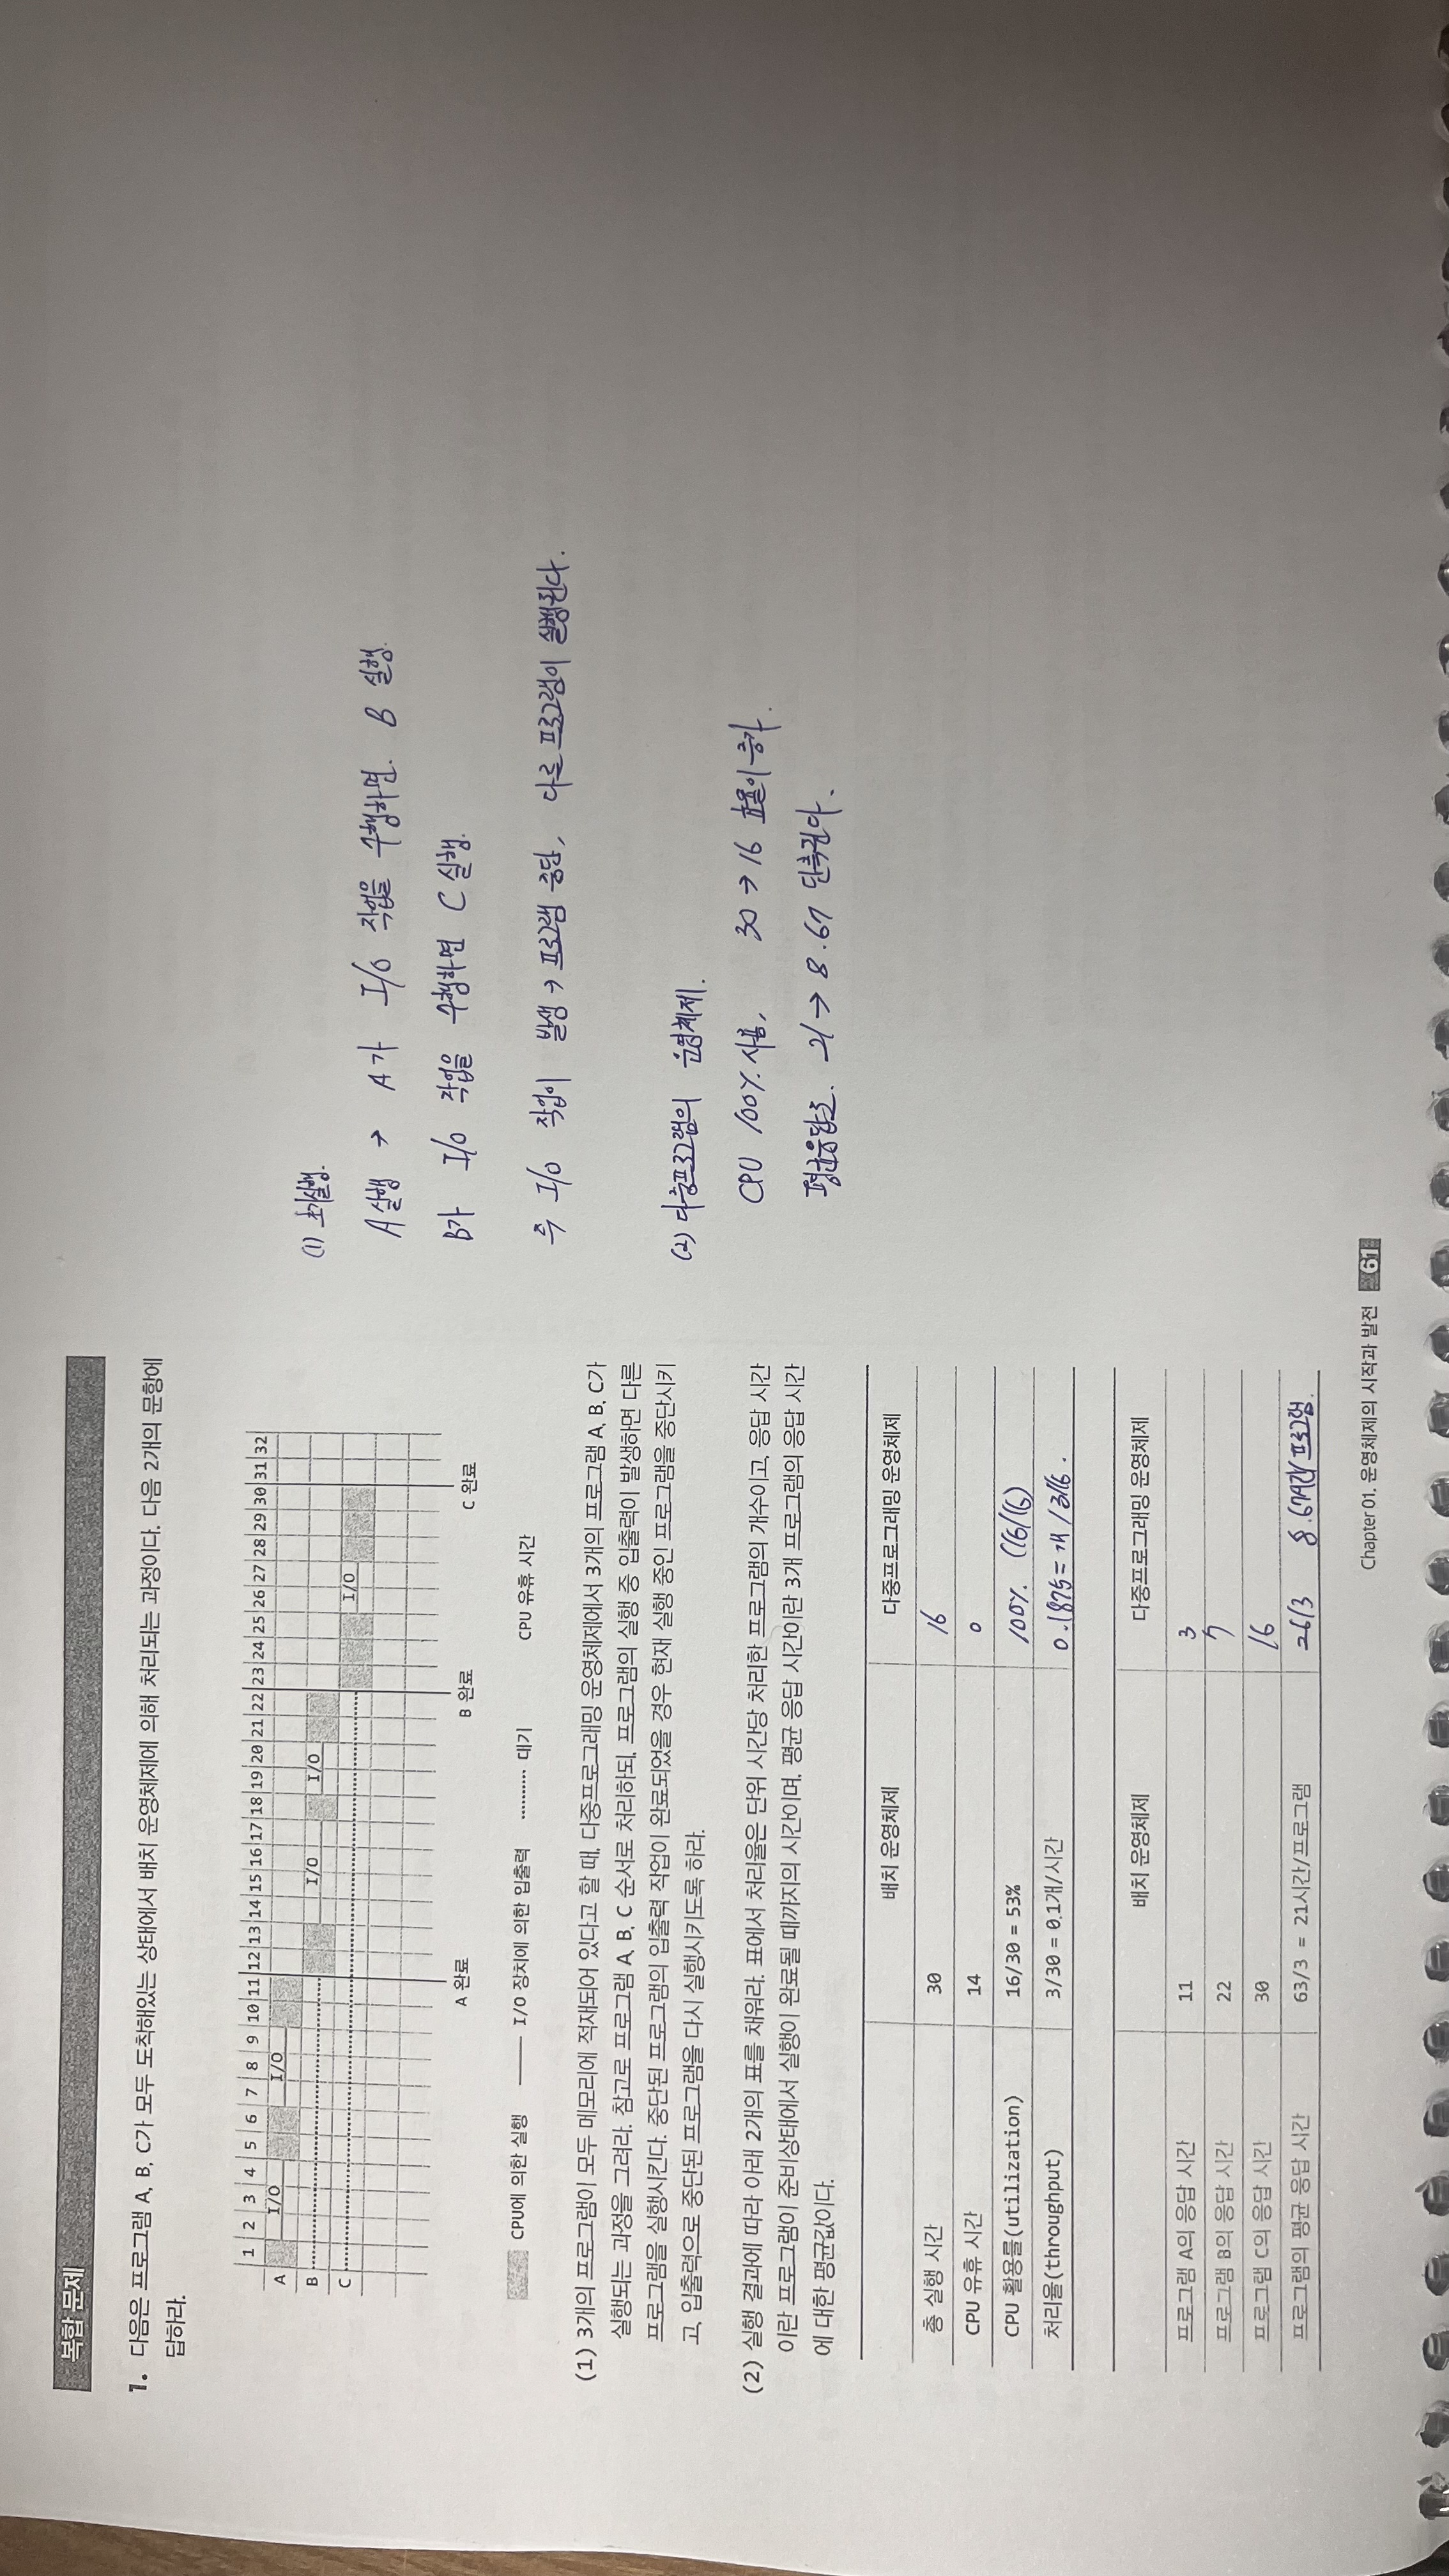 복합 문제
1. 다음은 프로그램 A, B, C가 모두 도착해있는 상태에서 배치 운영체제에 의해 처리되는 과정이다. 다음 2개의 문항에
답하라.
1 2 3 4 5 6 7 8 9 10 11 12 13 14 15 16 17 18 19 20 21 22 23 24 25 26 27 28 29 30 31 32
A I/O I/O
B I/O I/O
C I/O
A 완료 B 완료 C 완료
CPU에 의한 실행 I/O 장치에 의한 입출력 대기 CPU 유휴 시간
(1) 3개의 프로그램이 모두 메모리에 적재되어 있다고 할 때, 다중프로그래밍 운영체제에서 3개의 프로그램 A, B, C가
실행되는 과정을 그려라. 참고로 프로그램 A, B, C 순서로 처리하되, 프로그램의 실행 중 입출력이 발생하면 다른
프로그램을 실행시킨다. 중단된 프로그램의 입출력 작업이 완료되었을 경우 현재 실행 중인 프로그램을 중단시키
고, 입출력으로 중단된 프로그램을 다시 실행시키도록 하라.
(2) 실행 결과에 따라 아래 2개의 표를 채워라. 표에서 처리율은 단위 시간당 처리한 프로그램의 개수이고, 응답 시간
이란 프로그램이 준비상태에서 실행이 완료될 때까지의 시간이며, 평균 응답 시간이란 3개 프로그램의 응답 시간
에 대한 평균값이다.
배치 운영체제 다중프로그래밍 운영체제
총 실행 시간 30 16
CPU 유휴 시간 14 0
CPU 활용률(utilization) 16/30 = 53% 100% (16/16)
처리율(throughput) 3/30 = 0.1개/시간 0.1875 = 개 / 3/16.
배치 운영체제 다중프로그래밍 운영체제
프로그램 A의 응답 시간 11 3
프로그램 B의 응답 시간 22 7
프로그램 C의 응답 시간 30 16
프로그램의 평균 응답 시간 63/3 = 21시간/프로그램 26/3 8.67시간/프로그램.
Chapter 01. 운영체제의 시작과 발전 61
(1) 초기실행.
A 실행 → A가 I/O 작업을 수행하면. B 실행.
B가 I/O 작업을 수행하면 C 실행.
즉 I/O 작업이 발생 → 프로그램 중단, 다른 프로그램이 실행된다.
(2) 다중프로그램의 운영체제.
CPU 100% 사용, 30 → 16 효율이 증가.
평균응답도. 21 → 8.67 단축된다.